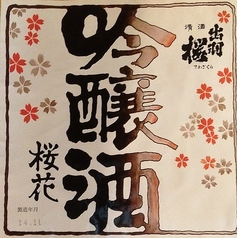 清酒
出羽桜
でわざくら
吟醸酒
桜花
製造年月
14.11